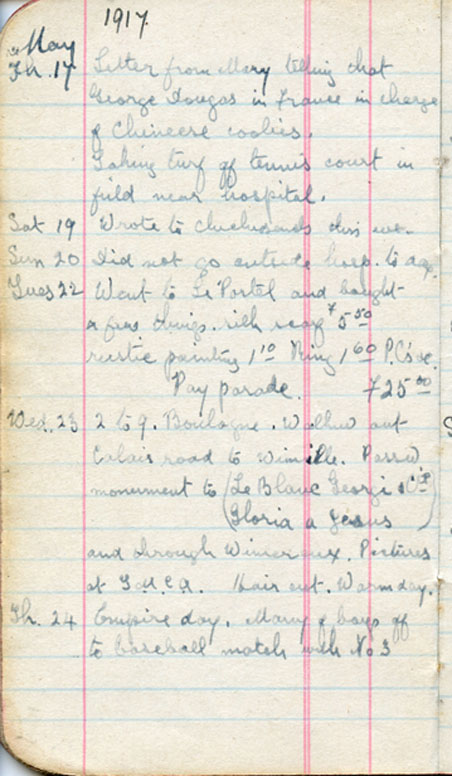 1917
May
Th. 17 Letter from Mary telling that
George Dougas in France in charge
of Chineese coolies.
Taking turf off tennis court in
field near hospital.
Sat 19 Wrote to this eve.
Sun 20 Did not go outside hosp. to day.
Tues 22 Went to Le Portel and bought
a few things. silk scarf 5 50
rustic painting 1 10 Ring 1 60 P.C's &c.
Pay parade. 25 00
Wed. 23 2 to 9. Boulogne. Walked out
Calais road to Wimille. Passed
monument to (Le Blanc Georgi & Cie
Gloria a Jesus)
and through Wimereux. Pictures
at Hair cut. Warm day.
Th. 24 Empire day. Many of boys off
to baseball match with No 3